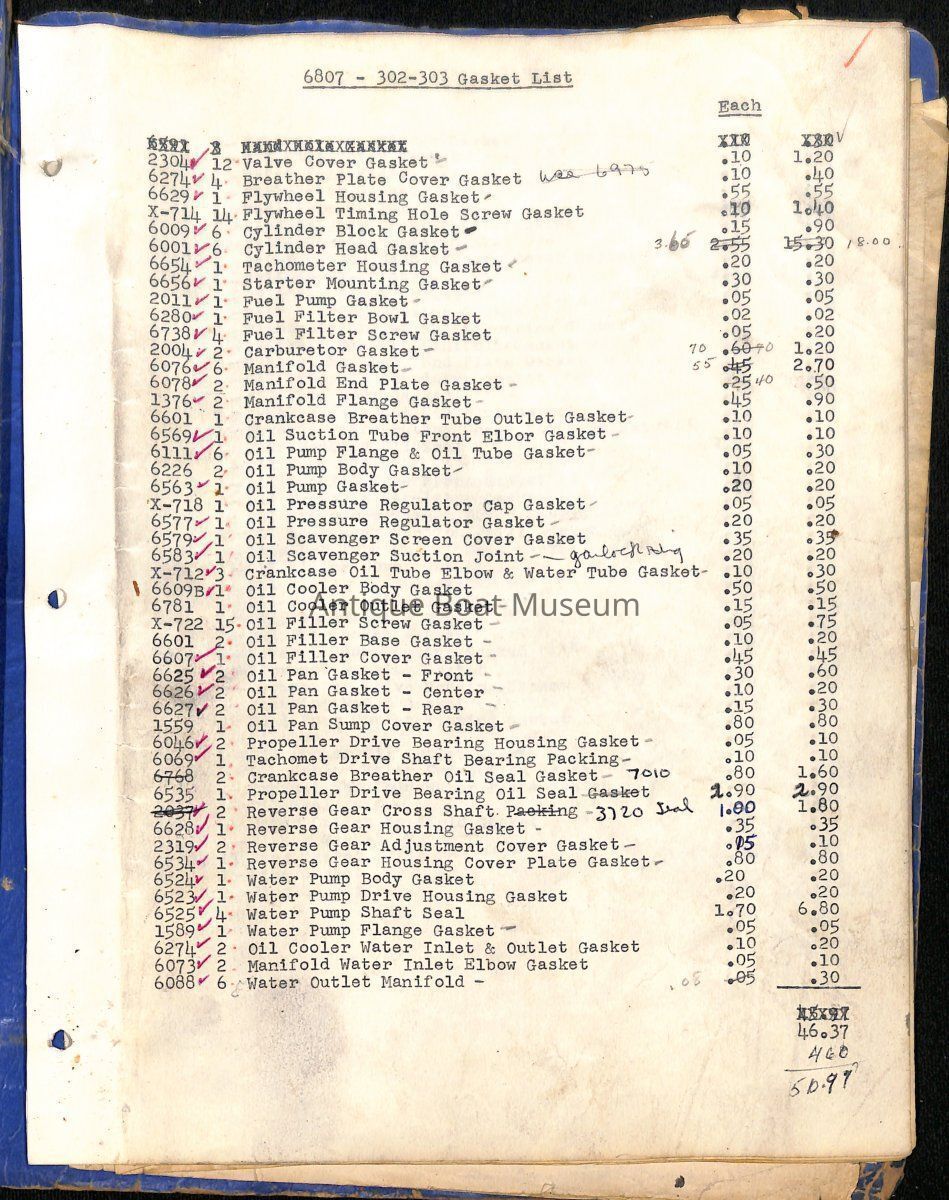 6807 - 302-303 Gasket List
Each
2304 12 Valve Cover Gasket .10 1.20
6274 4 Breather Plate Cover Gasket Use 6975 .10 .40
6629 1 Flywheel Housing Gasket .55 .55
X-714 14 Flywheel Timing Hole Screw Gasket .10 1.40
6009 6 Cylinder Block Gasket .15 .90
6001 6 Cylinder Head Gasket 3.65 2.55 15.30 18.00
6654 1 Tachometer Housing Gasket .20 .20
6656 1 Starter Mounting Gasket .30 .30
2011 1 Fuel Pump Gasket .05 .05
6280 1 Fuel Filter Bowl Gasket .02 .02
6738 4 Fuel Filter Screw Gasket .05 .20
2004 2 Carburetor Gasket 70 .60 70 1.20
6076 6 Manifold Gasket 55 .45 2.70
6078 2 Manifold End Plate Gasket .25 40 .50
1376 2 Manifold Flange Gasket .45 .90
6601 1 Crankcase Breather Tube Outlet Gasket .10 .10
6569 1 Oil Suction Tube Front Elbor Gasket .10 .10
6111 6 Oil Pump Flange & Oil Tube Gasket .05 .30
6226 2 Oil Pump Body Gasket .10 .20
6563 1 Oil Pump Gasket .20 .20
X-718 1 Oil Pressure Regulator Cap Gasket .05 .05
6577 1 Oil Pressure Regulator Gasket .20 .20
6579 1 Oil Scavenger Screen Cover Gasket .35 .35
6583 1 Oil Scavenger Suction Joint - garlock ring .20 .20
X-712 3 Crankcase Oil Tube Elbow & Water Tube Gasket .10 .30
6609B 1 Oil Cooler Body Gasket .50 .50
6781 1 Oil Cooler Outlet Gasket .15 .15
Antique Boat Museum
X-722 15 Oil Filler Screw Gasket .05 .75
6601 2 Oil Filler Base Gasket .10 .20
6607 1 Oil Filler Cover Gasket .45 .45
6625 2 Oil Pan Gasket - Front .30 .60
6626 2 Oil Pan Gasket - Center .10 .20
6627 2 Oil Pan Gasket - Rear .15 .30
1559 1 Oil Pan Sump Cover Gasket .80 .80
6046 2 Propeller Drive Bearing Housing Gasket .05 .10
6069 1 Tachomet Drive Shaft Bearing Packing .10 .10
6768 2 Crankcase Breather Oil Seal Gasket 7010 .80 1.60
6535 1 Propeller Drive Bearing Oil Seal Gasket 2.90 2.90
2037 2 Reverse Gear Cross Shaft Packing - 3720 Seal 1.00 1.80
6628 1 Reverse Gear Housing Gasket - .35 .35
2319 2 Reverse Gear Adjustment Cover Gasket .15 .10
6534 1 Reverse Gear Housing Cover Plate Gasket .80 .80
6524 1 Water Pump Body Gasket .20 .20
6523 1 Water Pump Drive Housing Gasket .20 .20
6525 4 Water Pump Shaft Seal 1.70 6.80
1589 1 Water Pump Flange Gasket .05 .05
6274 2 Oil Cooler Water Inlet & Outlet Gasket .10 .20
6073 2 Manifold Water Inlet Elbow Gasket .05 .10
6088 6 Water Outlet Manifold - .08 .05 .30
46.37
460
50.97